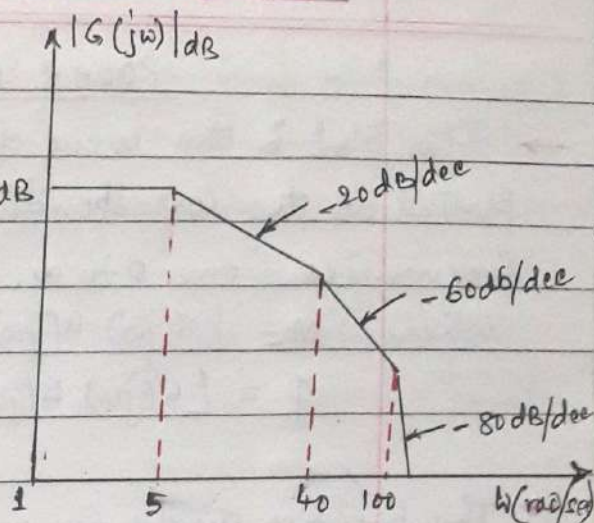 |G(jω)|dB
dB
-20dB/dec
-60db/dec
-80dB/dec
1 5 40 100 W(rad/sec)